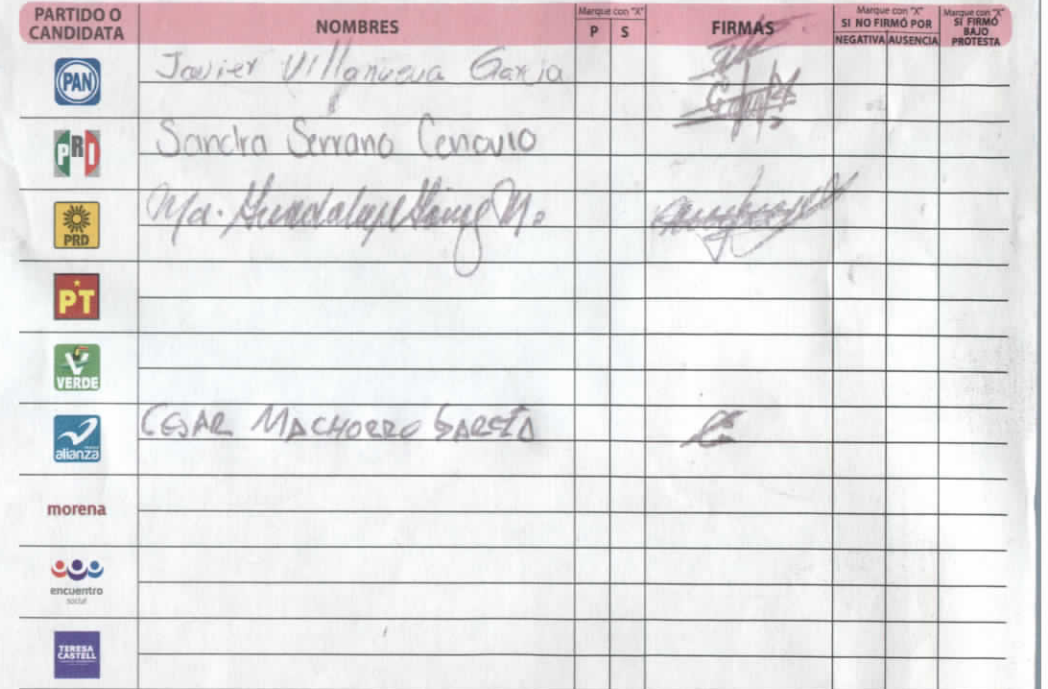 PARTIDO O CANDIDATA
NOMBRES
Marque con "X"
P S
FIRMAS
Marque con "X"
SI NO FIRMÓ POR
NEGATIVA AUSENCIA
Marque con "X"
SI FIRMÓ
BAJO
PROTESTA
PAN Javier Villanueva Garcia
PRI Sandra Serrano
PRD Ma. Guadalupe
PT
VERDE
alianza CESAR MACHORRO GARCÍA
morena
encuentro
social
TERESA
CASTELL